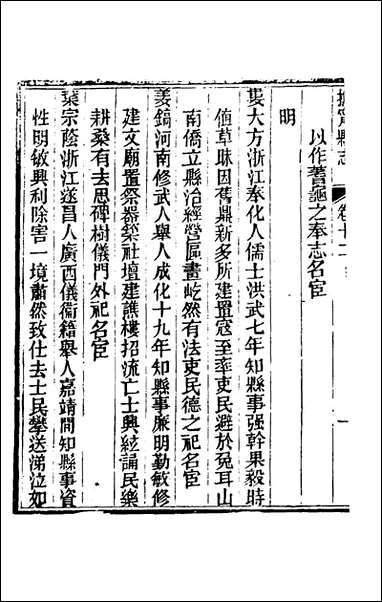 撫甯縣志 卷十二 一
以作蓍龜之奉志名宦
明
婁大方浙江奉化人儒士洪武七年知縣事强幹果毅時
值草昧因舊鼎新多所建置寇至率吏民避於兔耳山
南僑立縣治經營區畫屹然有法吏民德之祀名宦
姜鎬河南修武人舉人成化十九年知縣事廉明勤敏修
建文廟置祭器築社壇建譙樓招流亡士興絃誦民樂
耕桑有去思碑樹儀門外祀名宦
葉宗蔭浙江遂昌人廣西儀衞籍舉人嘉靖間知縣事資
性明敏興利除害一境肅然致仕去士民攀送涕泣如